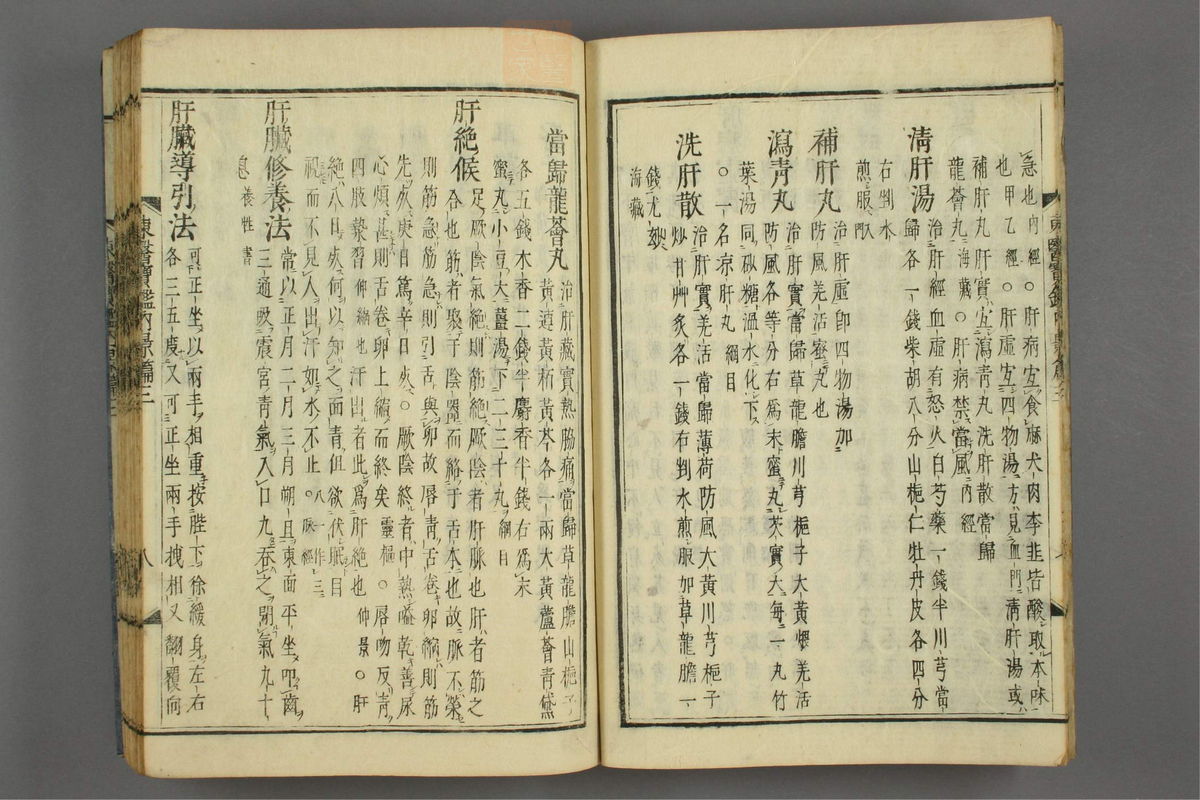 急也內經○肝病宜食麻犬肉李韭皆酸取本味
也甲乙經○肝虛宜四物湯方見血門淸肝湯或
補肝丸肝實宜瀉靑丸洗肝散當歸
龍薈丸海藏○肝病禁當風內經
淸肝湯治肝經血虛有怒火白芍藥一錢半川芎當
歸各一錢柴胡八分山梔仁牡丹皮各四分
右剉水
煎服
補肝丸治肝虛卽四物湯加
防風羌活蜜丸也
瀉靑丸治肝實當歸草龍膽川芎梔子大黃煨羌活
防風各等分右爲末蜜丸芡實大每一丸竹
葉湯同砂糖溫水化下
○一名凉肝丸綱目
洗肝散治肝實羌活當歸薄荷防風大黃川芎梔子
炒甘艸炙各一錢右剉水煎服加草龍膽一
錢尤妙
海藏
當歸龍薈丸治肝藏實熱脇痛當歸草龍膽山梔子
黃連黃栢黃芩各一兩大黃蘆薈靑黛
各五錢木香二錢半麝香半錢右爲末
蜜丸小豆大薑湯下二三十丸綱目
肝絕候足厥陰氣絕則筋絕厥陰者肝脉也肝者筋之
合也筋者聚于陰器而絡于舌本也故脈不榮
則筋急筋急則引舌與卵故唇靑舌卷卵縮則筋
先死庚日篤辛日死○厥陰終者中熱嗌乾善尿
心煩甚則舌卷卵上縮而終矣靈樞○唇吻反靑
四肢漐習伸縮也汗出者此爲肝絕也仲景○肝
絕八日死何以知之面靑但欲伏眠目
視而不見人出汗如水不止○八作三脉經
肝臟修養法常以正月二月三月朔旦東面平坐叩齒
三通吸震宮靑氣入口九吞之閉氣九十
息養性書
肝臟導引法可正坐以兩手相重按䏶下徐緩身左右
各三五度又可正坐兩手拽相叉翻覆向
東醫寶鑑內景篇三
八